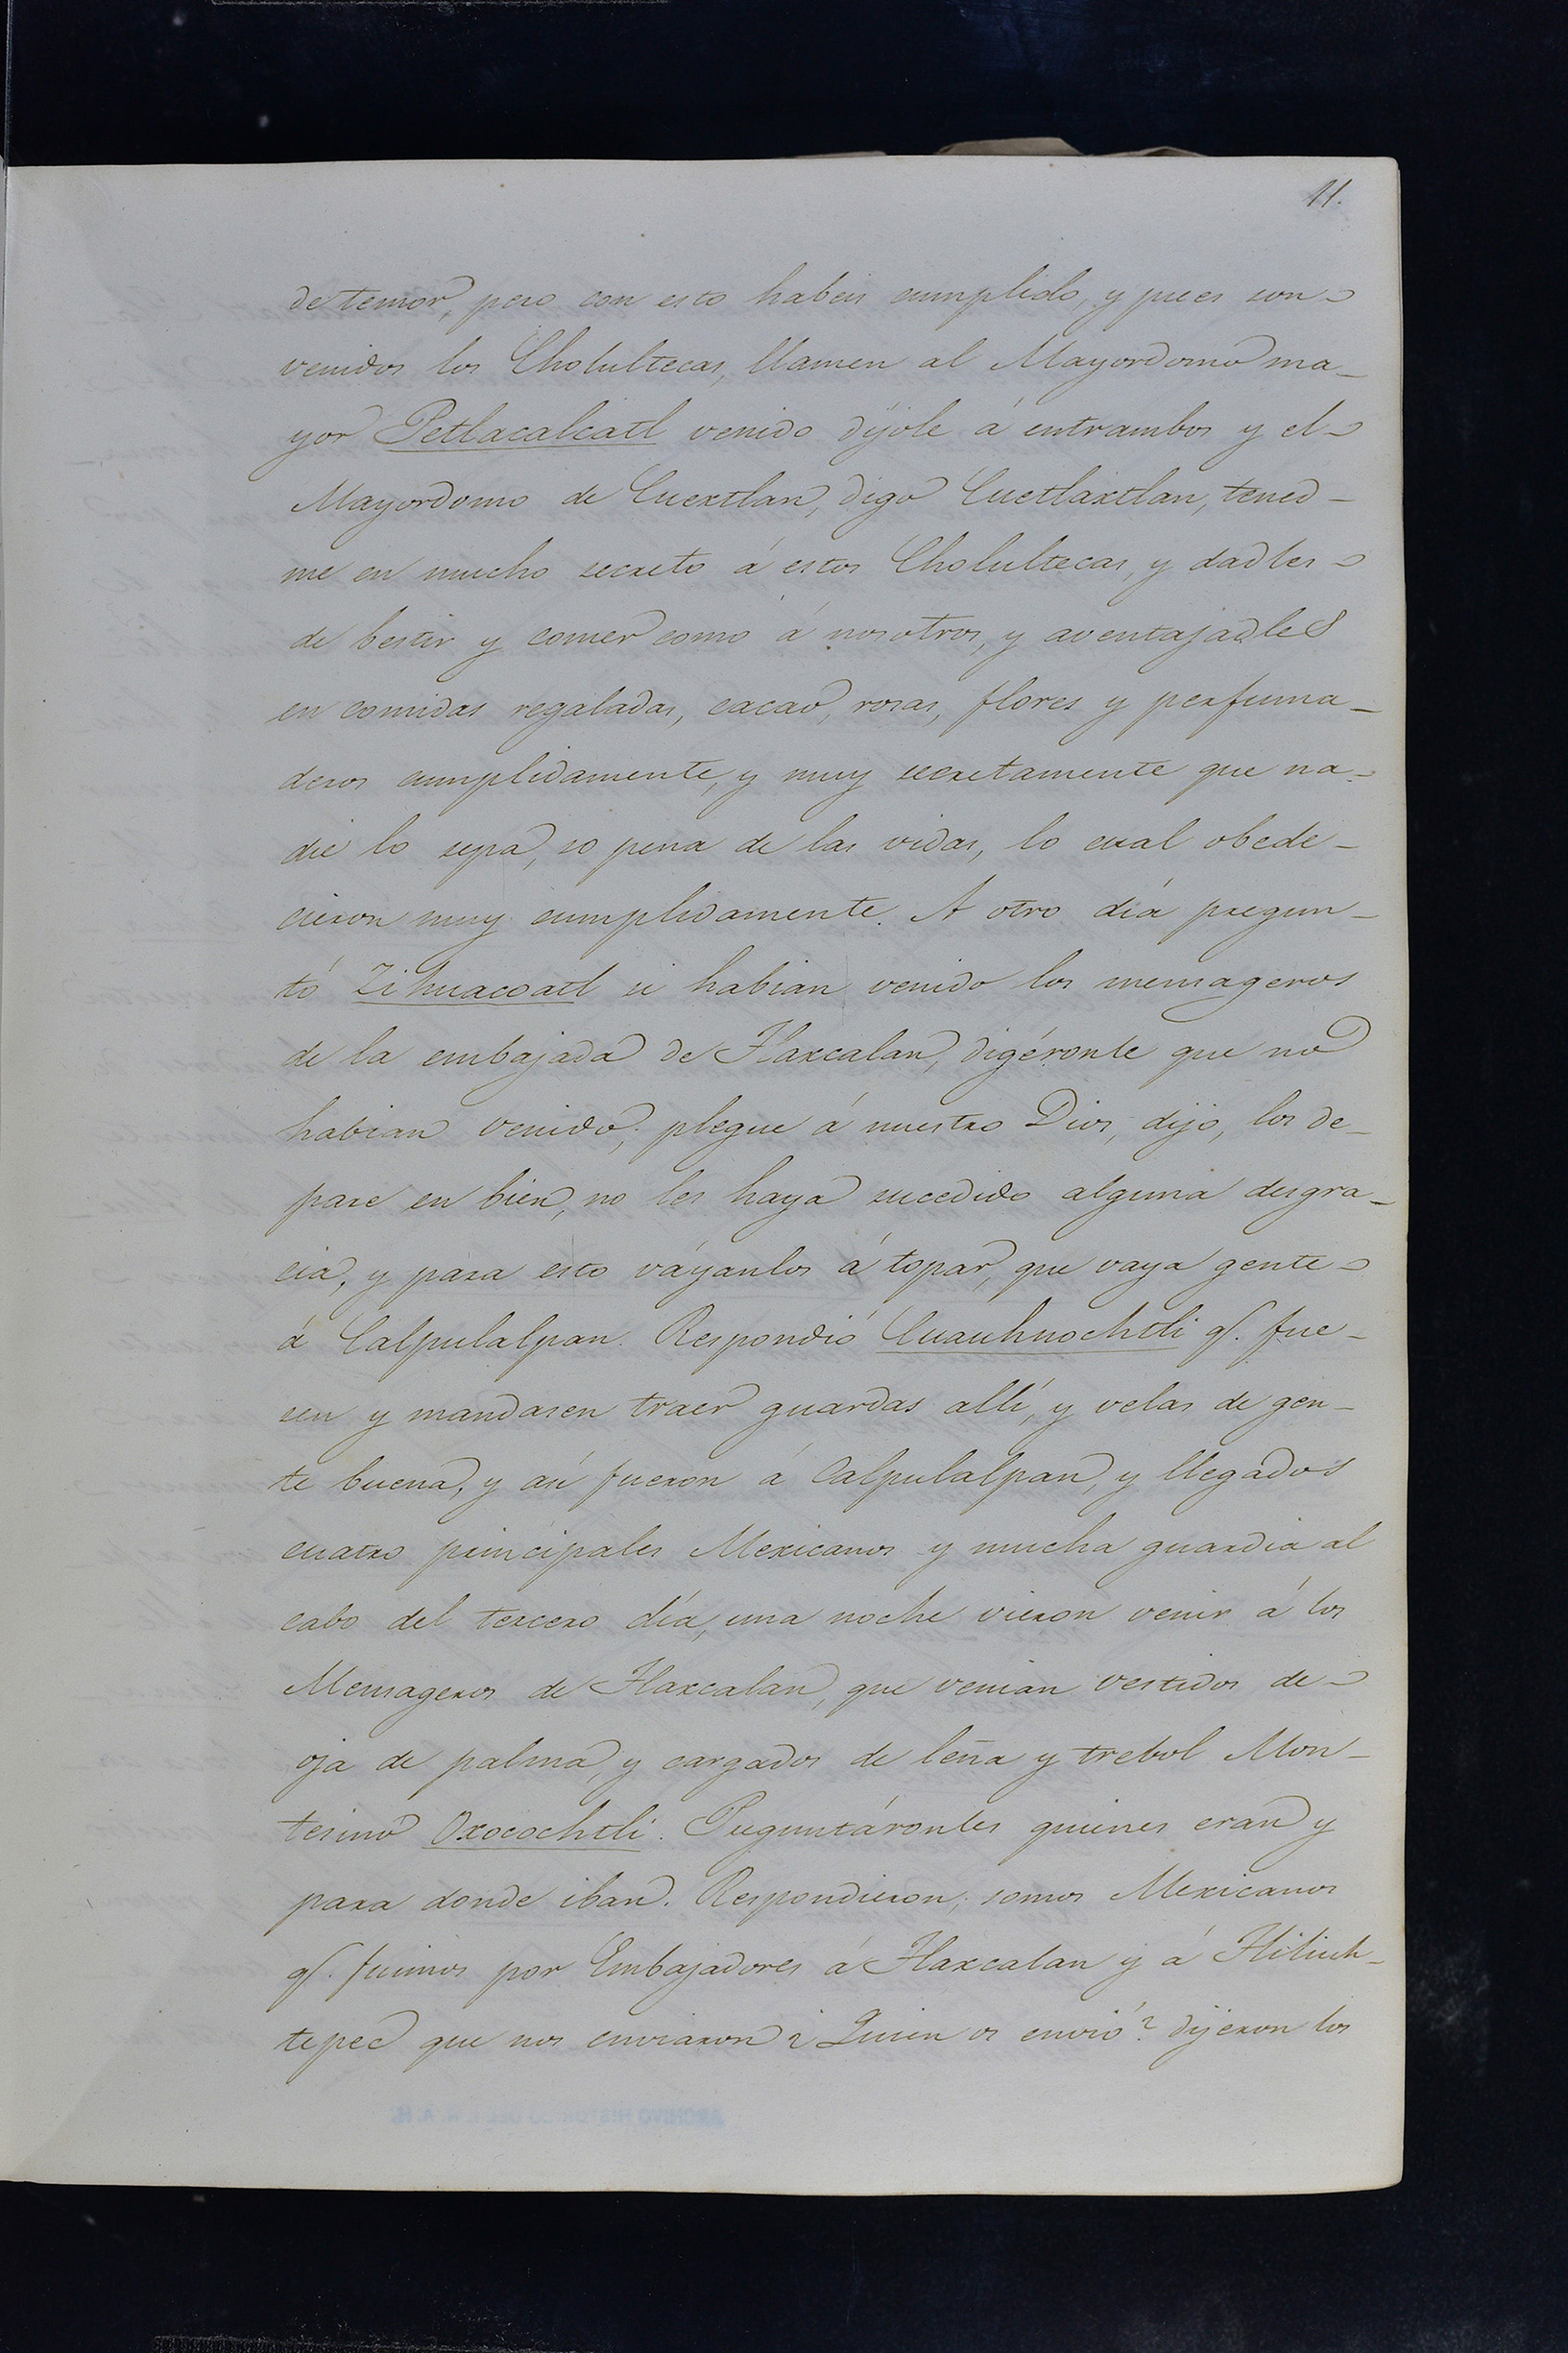 11.
de temor, pero con esto habeis cumplido, y pues son
venidos los Cholultecas, llamen al Mayordomo ma-
yor Petlacalcatl venido díjole á entrambos y el
Mayordomo de Cuextlan, digo Cuetlaxtlan, tened-
me en mucho secreto á estos Cholultecas, y dadles
de bestir y comer como á nosotros, y aventajadles
en comidas regaladas, cacao, rosas, flores y perfuma-
deros cumplidamente, y muy secretamente que na-
die lo sepa, so pena de las vidas, lo cual obede-
cieron muy cumplidamente. A otro día pregun-
tó Zihuacoatl si habian venido los mensageros
de la embajada de Tlaxcalan, digéronle que no
habian venido; plegue á nuestro Dios, dijo, los de-
pare en bien, no les haya sucedido alguna desgra-
cia, y para esto váyanlos á topar, que vaya gente
á Calpulalpan. Respondió Cuauhnochtli q. fue-
sen y mandasen traer guardas allí, y velas de gen-
te buena, y así fueron á Calpulalpan, y llegados
cuatro principales Mexicanos y mucha guardia al
cabo del tercero día, una noche vieron venir á los
Mensageros de Tlaxcalan, que venian vestidos de
oja de palma, y cargados de leña y trebol Mon-
tesino Oxocochtli. Preguntáronles quienes eran y
para donde iban. Respondieron; somos Mexicanos
q. fuimos por Embajadores á Tlaxcalan y á Tliliuh-
tepec que nos enviaron ¿Quien os envió? dijeron los